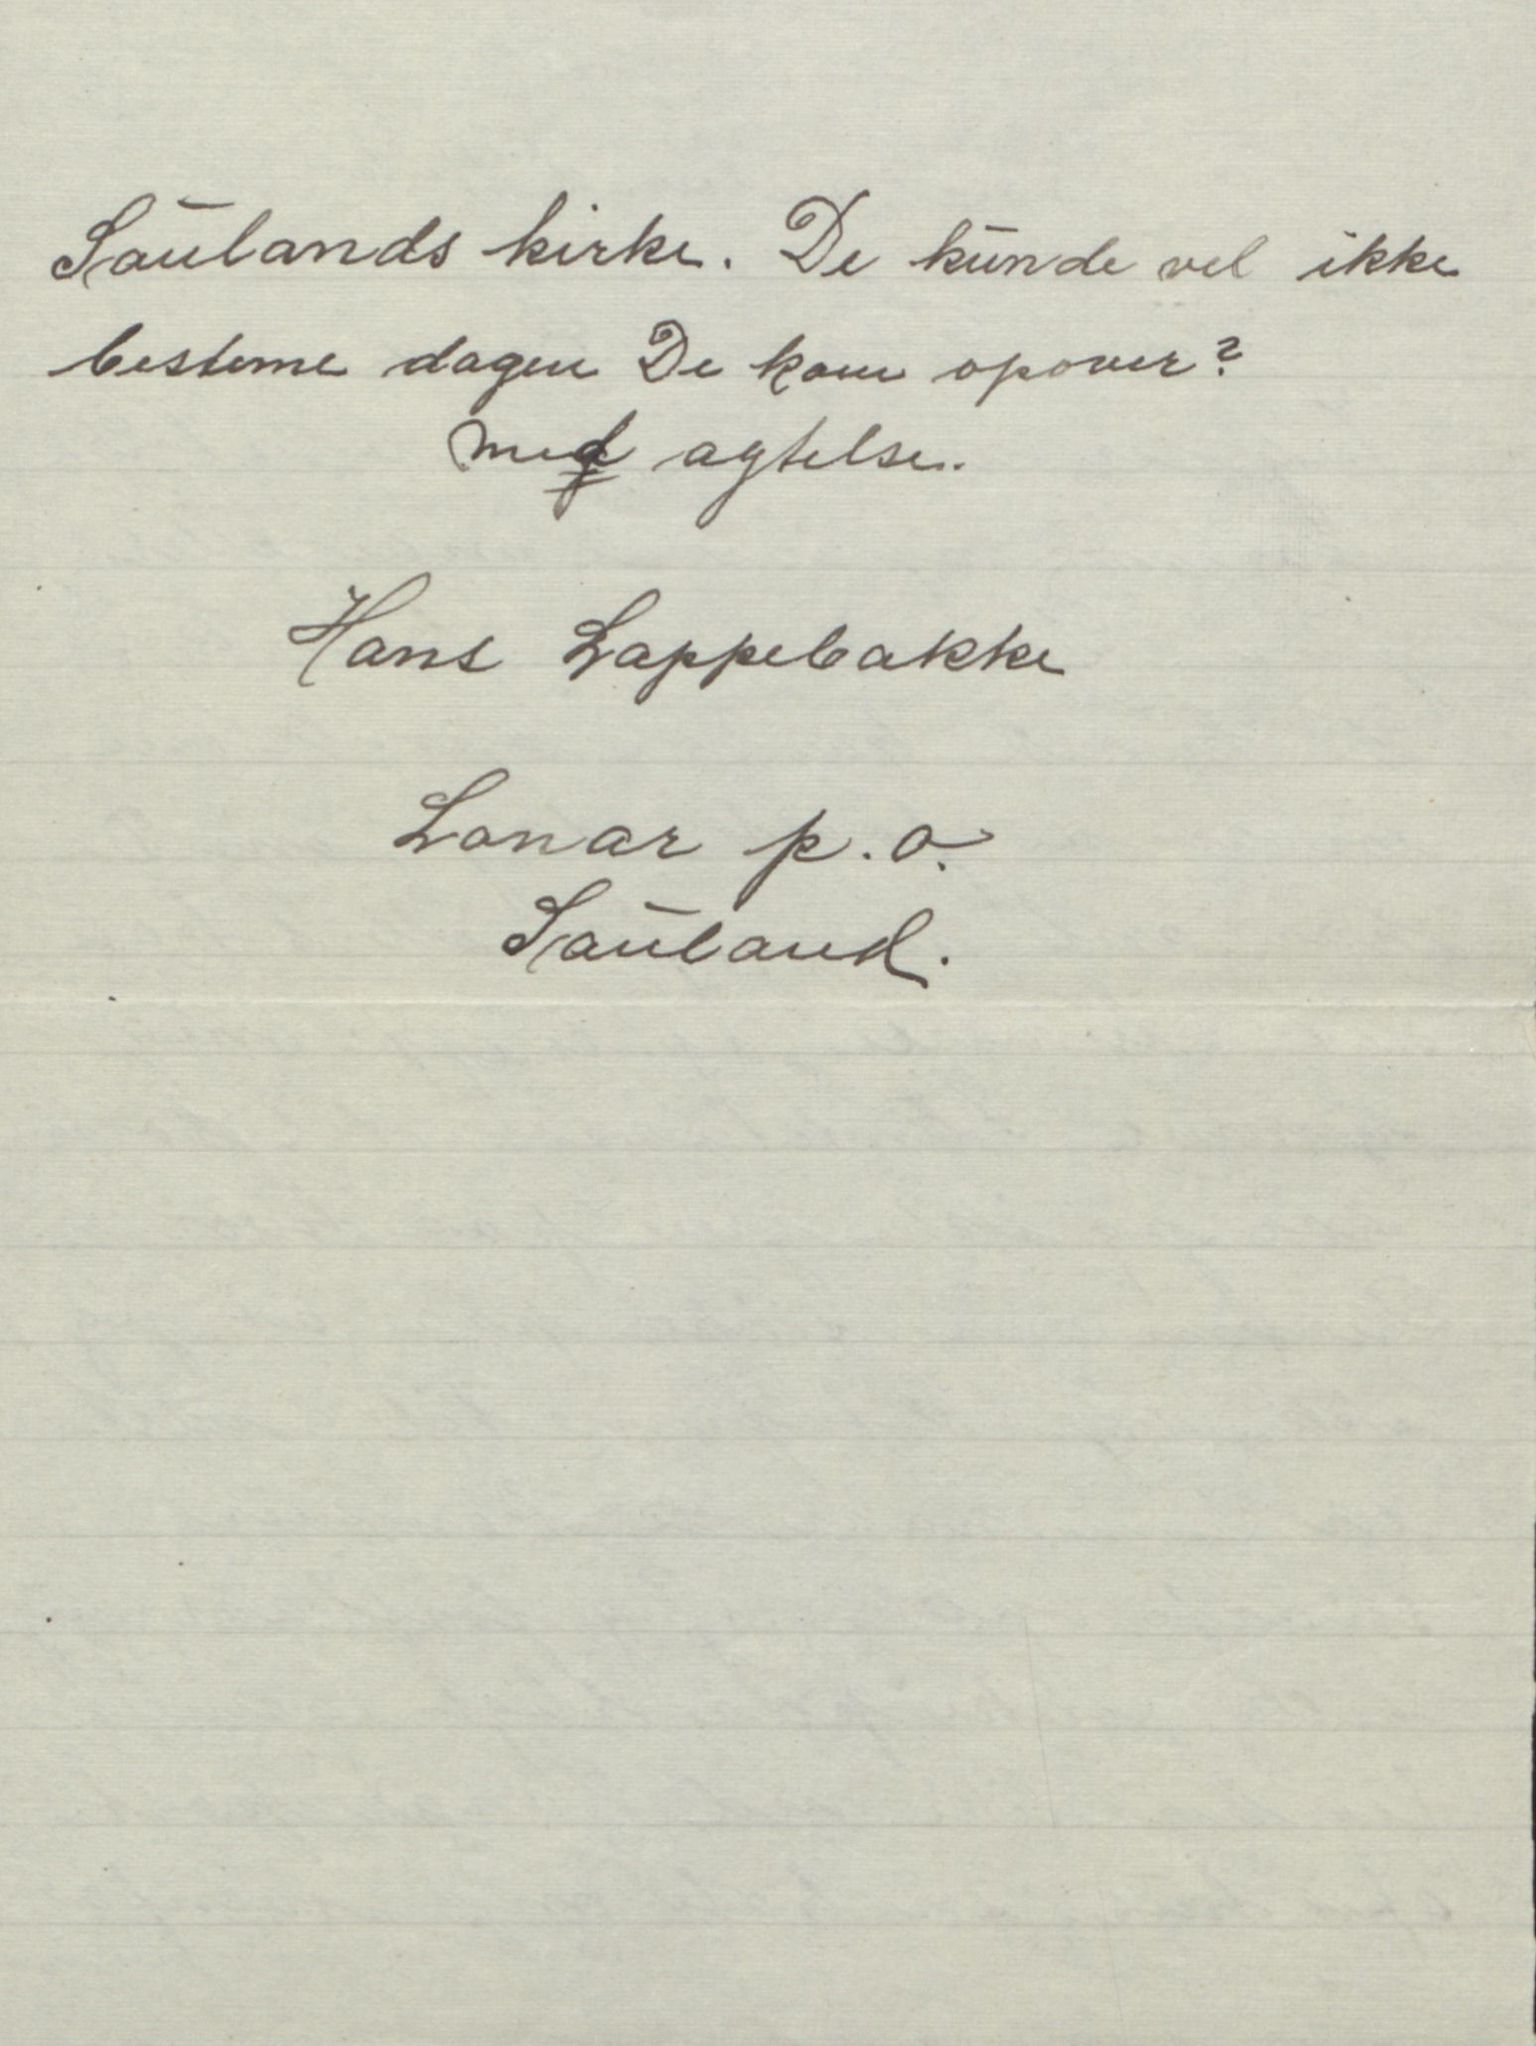 Saulands kirke. De kunde vel ikke
besteme dagen De kom opover?
med agtelse.
Hans Lappebakke
Lonar p.o.
Sauland.